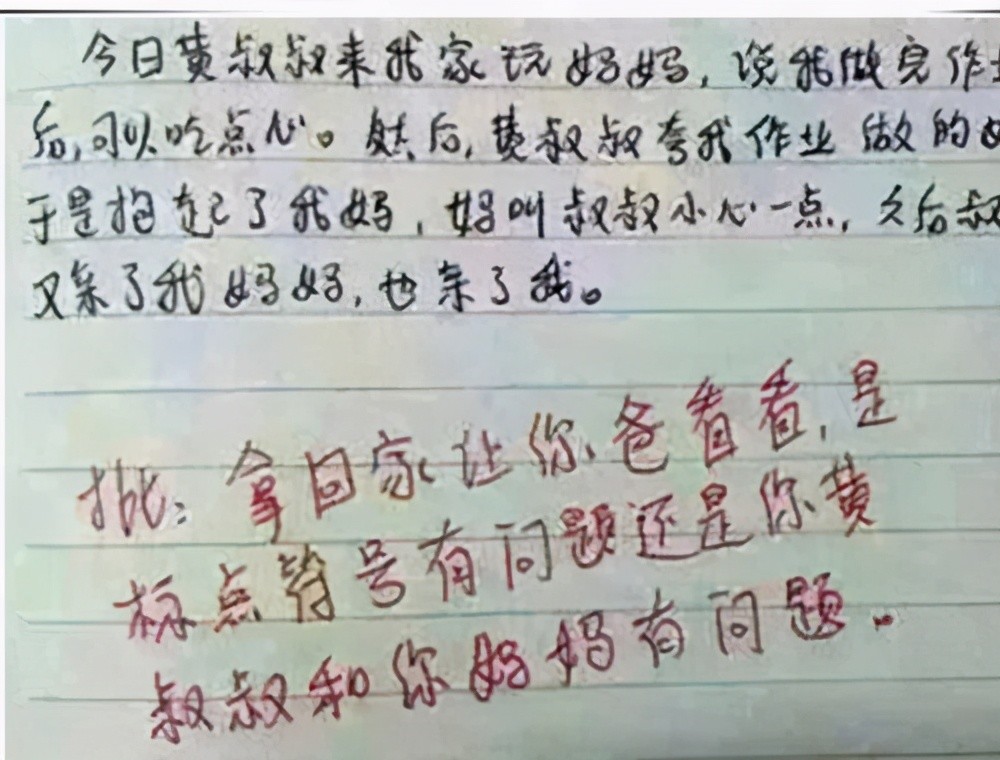 今日黄叔叔来我家玩妈妈，说我做完作
后，可以吃点心。然后，黄叔叔夸我作业做的
于是抱起了我妈，妈叫叔叔小心一点，久后叔
又亲了我妈妈，也亲了我。
批：拿回家让你爸看看，是
标点符号有问题还是你黄
叔叔和你妈妈有问题.